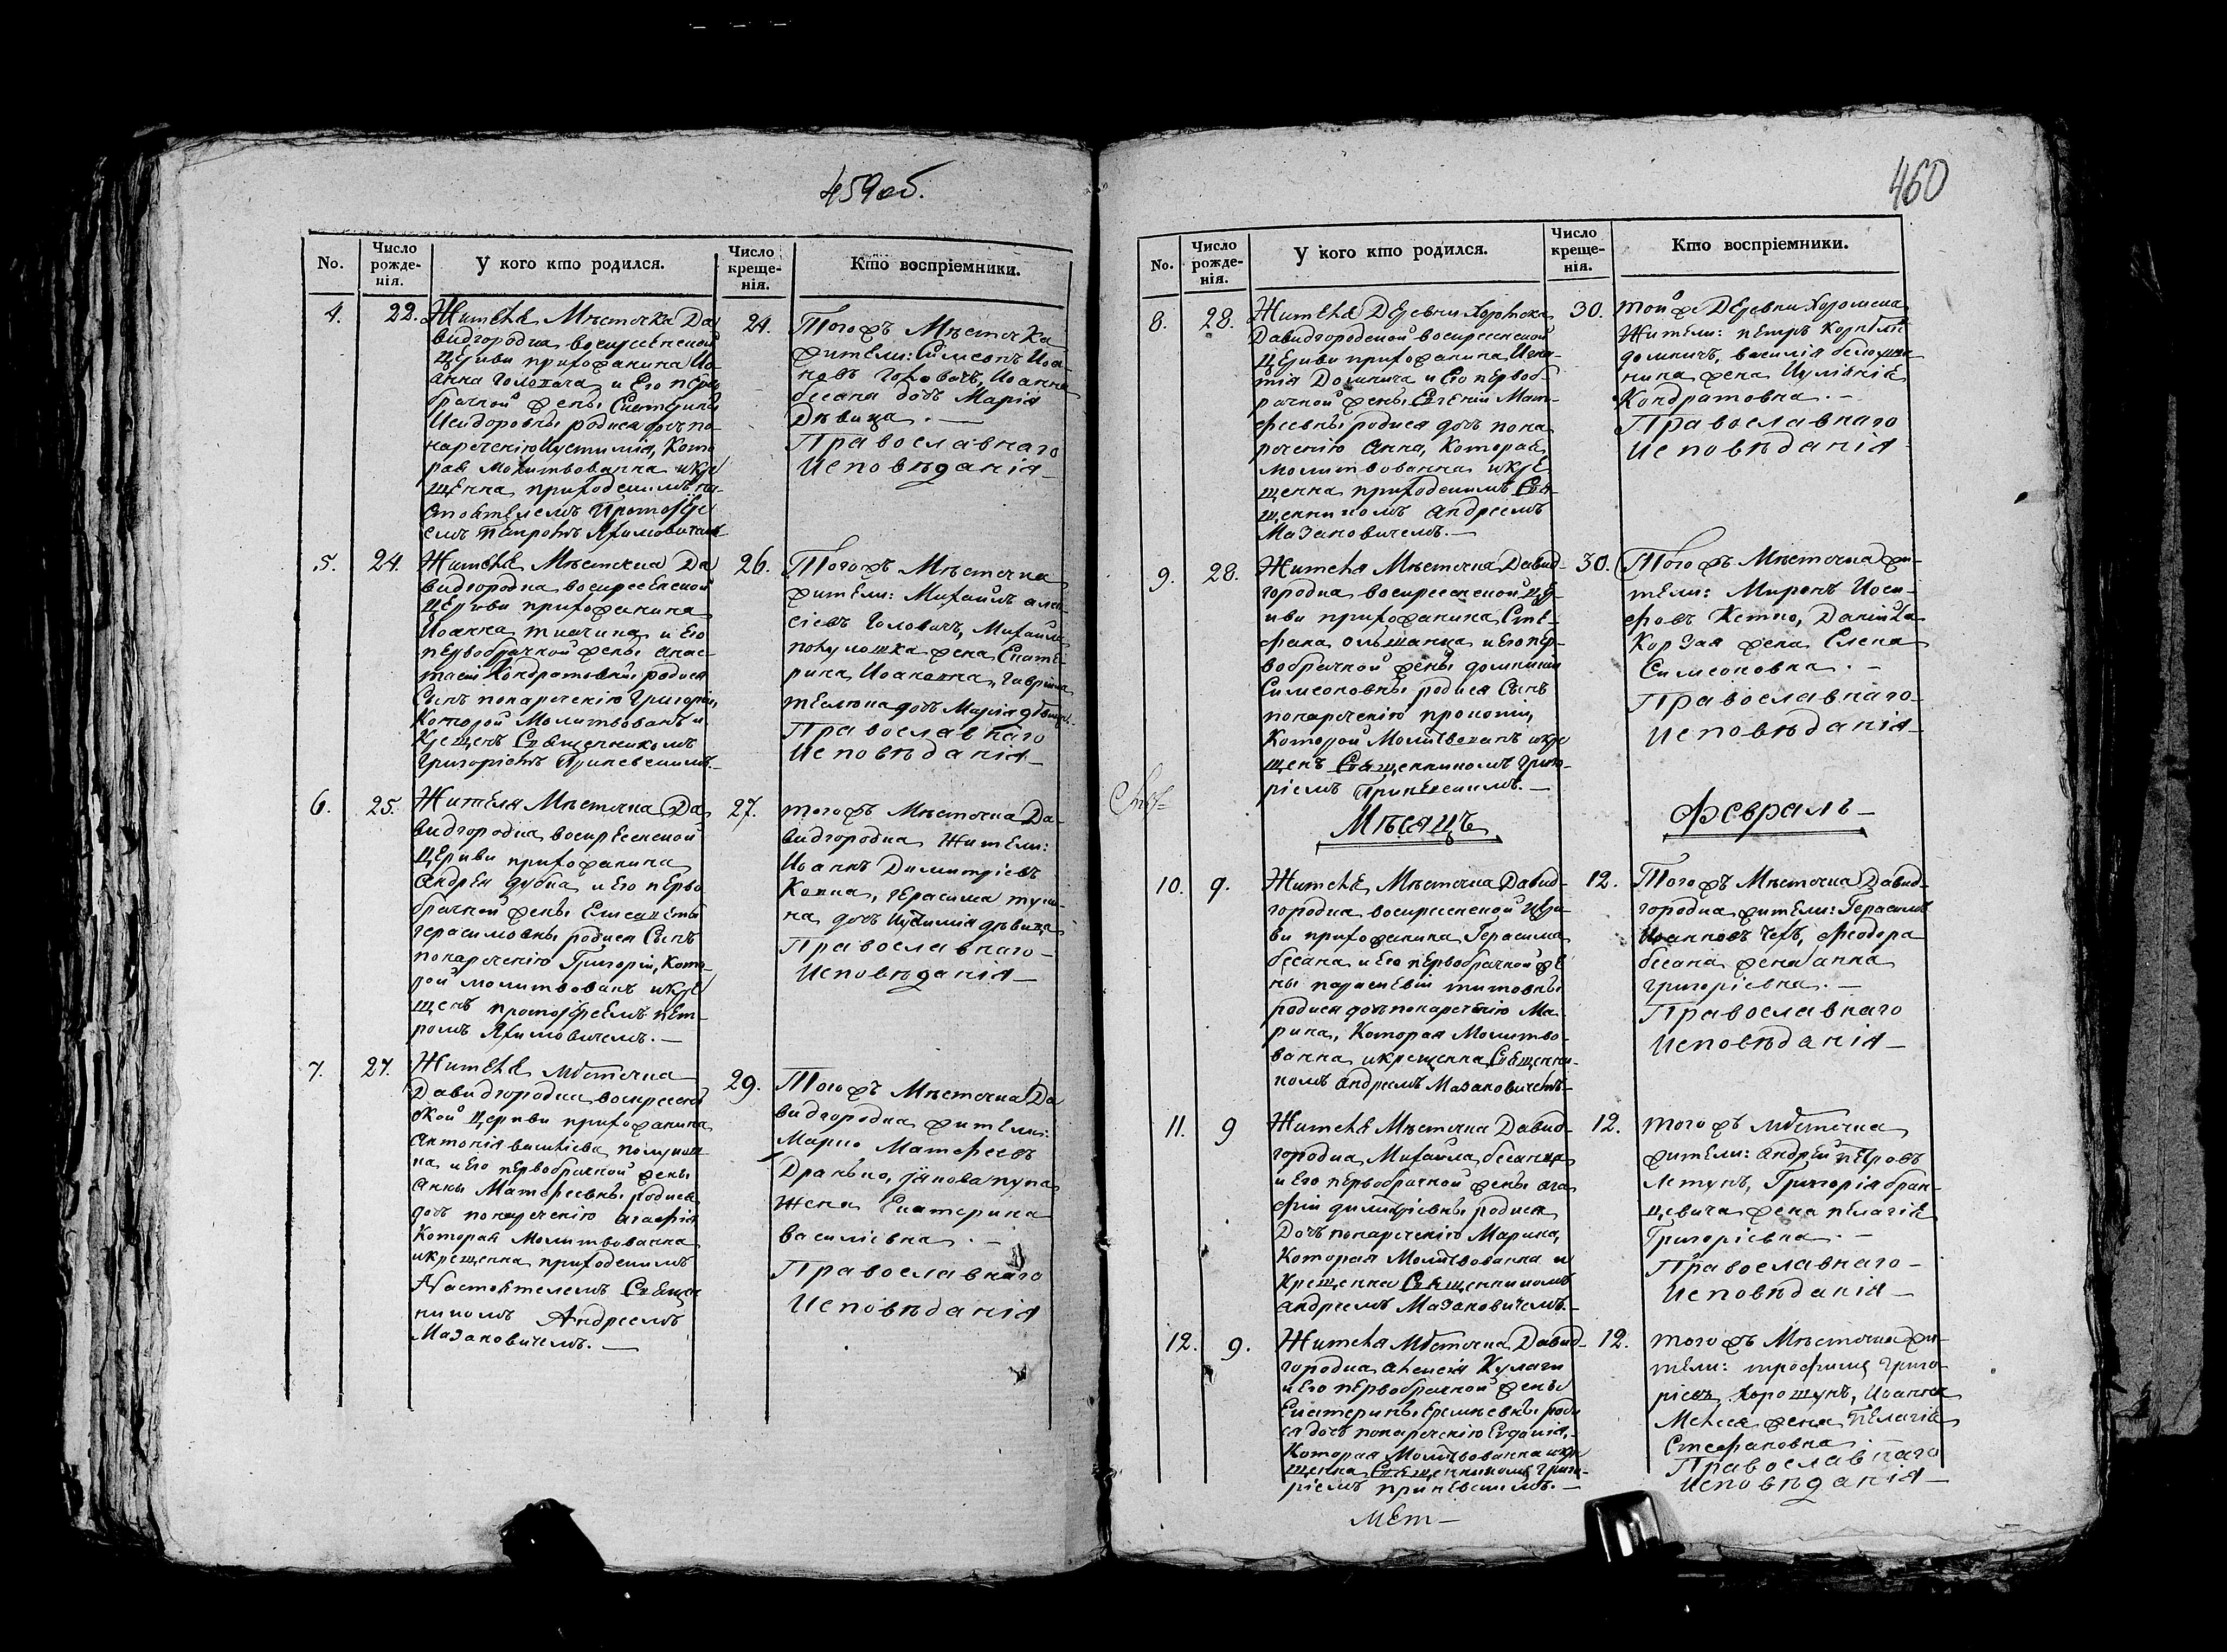 459 об.
No.
Число рожде-нія.
У кого кто родился.
Число креще-нія.
Кто воспріемники.
4.
22.
Жителя Мѣсточка Да
видгородка воскресенской
Церкви прихожанина Іо
анна Головача и Его перво
брачной жены Екатерины
Исидоровны родися дочь по
нареченію Иустинія, Кото
рая Молитвованна и кре
щенна приходскимъ на-
стоятелемъ Протоіере
емъ Петромъ Яхимовичемъ
24.
Тогожъ Мѣсточка
жители: Симеонъ Иоа-
новъ Головачъ, Иоанна
бесана дочь Марія
Дѣвица. —
Православнаго
Исповѣданія
5.
24.
Жителя Мѣсточка Да
видгородка воскресенской
Церкви прихожанина
Иоанна и Его
первобрачной жены Анас-
тасіи Кондратовны родися
Сынъ понареченію Григорій,
Которой Молитвованъ и
Крещенъ Священникомъ
Григоріемъ
26.
Тогожъ Мѣсточка
жители: Михаилъ алек
сіевъ Головачъ, Михаила
жена Екате-
рина Иоановна, Гавріила
дочь Марія дѣвица
Православнаго
Исповѣданія
6.
25.
Жителя Мѣсточка Да
видгородка воскресенской
Церкви прихожанина
Андрея дубка и Его перво
брачной жены Елисаветы
Герасимовны родися Сынъ
понареченію Григорій, Кото-
рой молитвованъ и кре
щенъ протоіереемъ Пет-
ромъ Яхимовичемъ. —
27.
тогожъ Мѣсточка Да-
видгородка Жители:
Иоаннъ Димитріевъ
Копца, Герасима
дочь дѣвица
Православнаго
Исповѣданія
7.
27.
Жителя Мѣсточка
Давидгородка воскресен
ской Церкви прихожанина
Антонія
и Его первобрачной жены
Анны Матфеевны родися
дочь понареченію Агафія
Которая Молитвованна
и крещенна приходскимъ
Настоятелемъ Священ
никомъ Андреемъ
Мазановичемъ. —
29.
Тогожъ Мѣсточка Да
видгородка жители:
Марко Матфеевъ
Жена Екатерина
Василіевна. —
Православнаго
Исповѣданія
460
No.
Число рожде-нія.
У кого кто родился.
Число креще-нія.
Кто воспріемники.
8.
28.
Жителя Деревни Хоромска
Давидгородской воскресенской
Церкви прихожанина Игна-
тія Домнича и Его первоб-
рачной жены Евгеніи Мат-
феевны родися дочь пона
реченію Анна, Которая
молитвованна и кре
щенна приходскимъ Свя-
щенникомъ Андреемъ
Мазановичемъ. —
30.
тойже Деревни Хоромска
Жители: Петръ
домничъ, василія
жена
Кондратовна. —
Православнаго
Исповѣданія
9.
28.
Жителя Мѣсточка Давид-
городка воскресенской Цер-
кви прихожанина Сте-
фана ольшанца и Его пер-
вобрачной жены домникіи
Симеоновны родися Сынъ
понареченію прокопій,
Которой Молитвованъ и кре
щенъ Священникомъ Григо-
ріемъ
30.
Тогожъ Мѣсточка жи-
тели: Миронъ Иоси-
фовъ Кетко, Даніила
Корзая жена Елена
Симеоновна. —
Православнаго
Исповѣданія
Мѣсяцъ
Февраль
10.
9.
Жителя Мѣсточка Давид-
городка воскресенской Церк-
ви прихожанина Герасима
бесана и Его первобрачной же
ны параскевіи титовны
родися дочь понареченію Ма-
рина, Которая Молитво-
ванна и крещенна Священни-
комъ Андреемъ Мазановичемъ
12.
Тогожъ Мѣсточка Давид-
городка жители: Герасимъ
Иоанновъ Чехъ, Феодора
бесана жена анна
григоріевна. —
Православнаго
Исповѣданія
11.
9
Жителя Мѣсточка Давид-
городка Михаила бесанца
и Его первобрачной жены ага
фіи димитріевны родися
Дочь понареченію Марина,
Которая Молитвованна и
Крещенна Священникомъ
андреемъ Мазановичемъ.
12.
тогожъ Мѣсточка
жители: Андрей Петровъ
Летунъ, Григорія бран-
цевича жена Пелагія
Григоріевна. —
Православнаго
Исповѣданія
12.
9.
Жителя Мѣсточка Давид-
городка алексія Кулаги
и Его первобрачной жены
Екатерины Еремѣевны роди
ся дочь понареченію Евдокія,
Которая Молитвованна и кре
щенна Священникомъ Григо-
ріемъ
12.
тогожъ Мѣсточка жи-
тели: трофимъ Григо-
ріевъ Хорошунъ, Иоанна
жена Пелагія
Стефановна.
Православнаго
Исповѣданія
Мет—